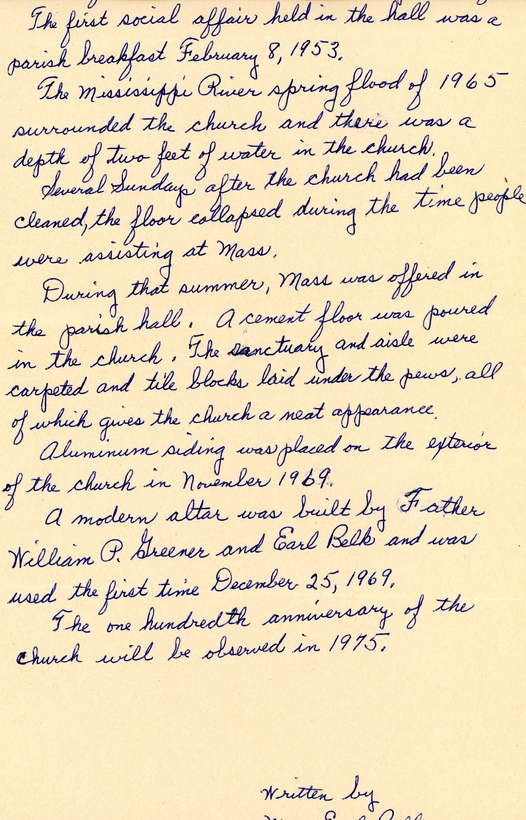 The first social affair held in the hall was a
parish breakfast February 8, 1953.
The Mississippi River spring flood of 1965
surrounded the church and there was a
depth of two feet of water in the church.
Several Sundays after the church had been
cleaned, the floor collapsed during the time people
were assisting at Mass.
During that summer, Mass was offered in
the parish hall. A cement floor was poured
in the church. The sanctuary and aisle were
carpeted and tile blocks laid under the pews, all
of which gives the church a neat appearance.
Aluminum siding was placed on the exterior
of the church in November 1969.
A modern altar was built by Father
William P. Greener and Earl Belk and was
used the first time December 25, 1969.
The one hundredth anniversary of the
church will be observed in 1975.
Written by
Earl